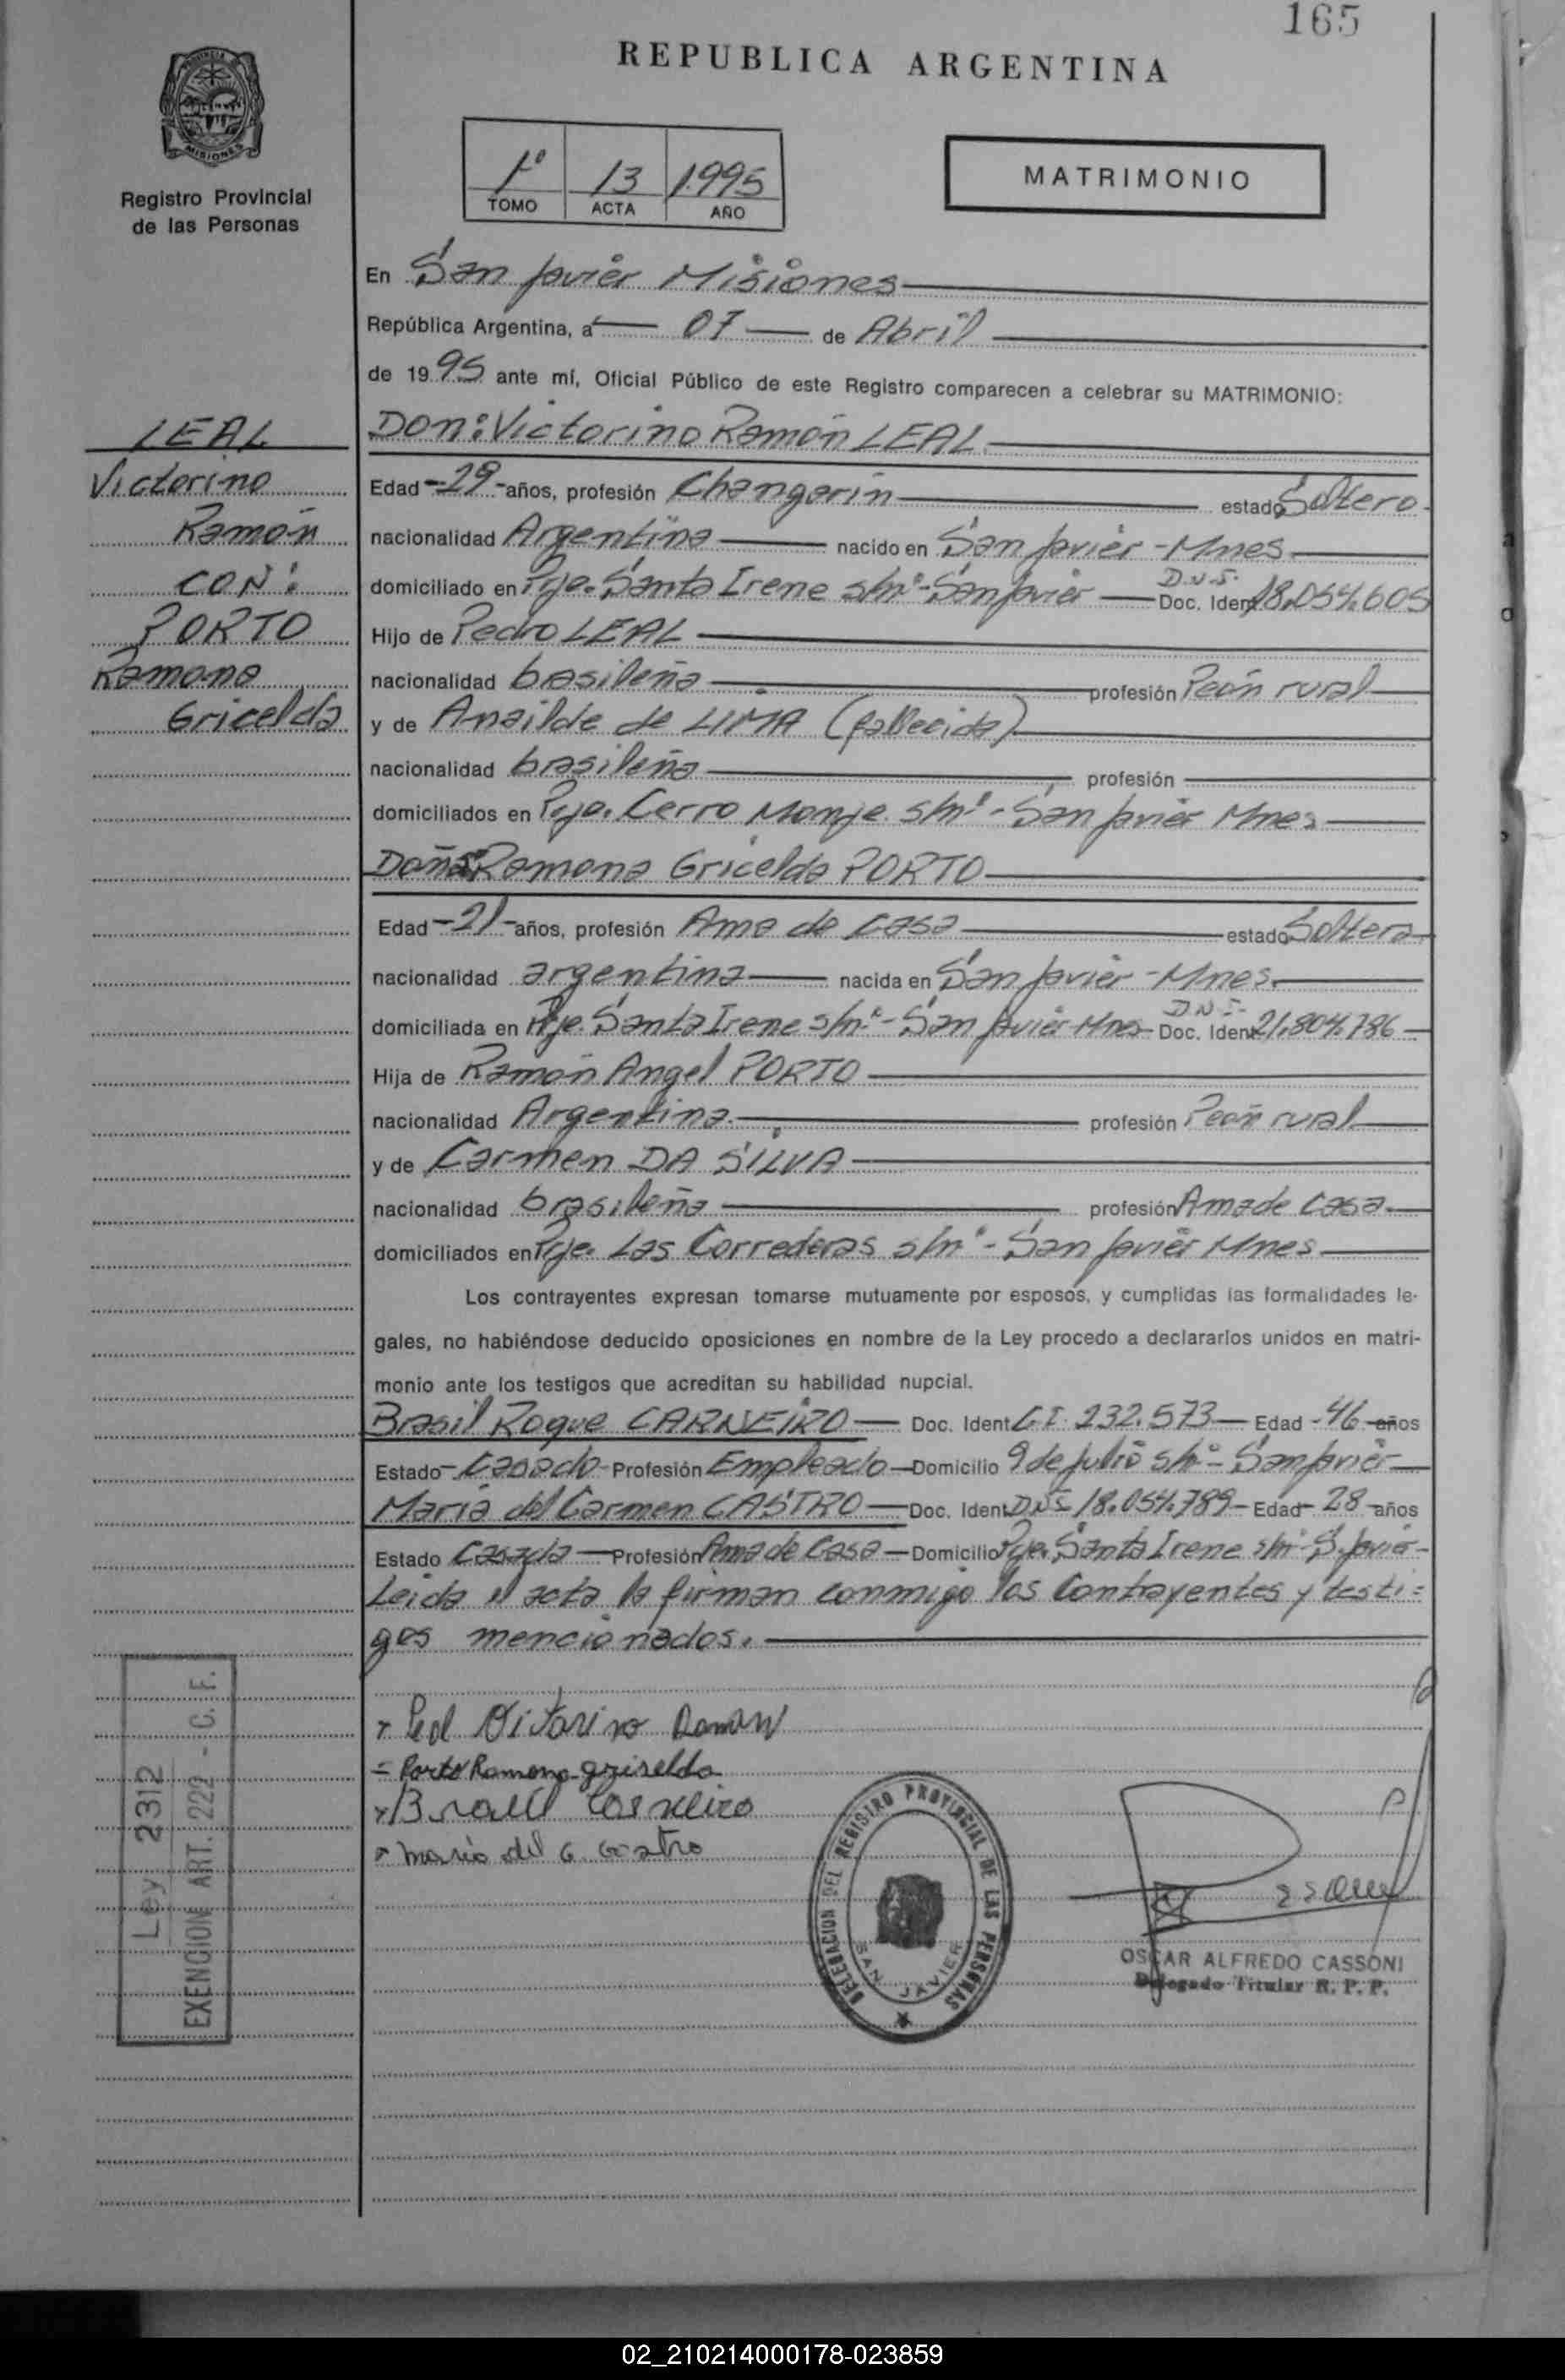 165
REPUBLICA ARGENTINA
PROVINCIA DE MISIONES
Registro Provincial
de las Personas
1º 13 1995
TOMO ACTA AÑO
MATRIMONIO
En San Javier Misiones
República Argentina, a 07 de Abril
de 1995 ante mí, Oficial Público de este Registro comparecen a celebrar su MATRIMONIO:
LEAL
Victorino
Ramón
CON:
PORTO
Ramona
Gricelda
Don: Victorino Ramón LEAL
Edad -29- años, profesión Changarin estado Soltero
nacionalidad Argentina nacido en San Javier - Mnes.
domiciliado en Pje. Santa Irene s/nº - San Javier D.N.I. Doc. Ident 18.054.605
Hijo de Pedro LEAL
nacionalidad brasileña profesión Peón rural
y de Anailde de LIMA (fallecida)
nacionalidad brasileña profesión
domiciliados en Pje. Cerro Monje s/nº - San Javier Mnes
Doña: Ramona Gricelda PORTO
Edad -21- años, profesión Ama de casa estado Soltera
nacionalidad argentina nacida en San Javier - Mnes.
domiciliada en Pje. Santa Irene s/nº - San Javier Mnes D.N.I. Doc. Ident 21.804.786
Hija de Ramón Angel PORTO
nacionalidad Argentina. profesión Peón rural
y de Carmen DA SILVA
nacionalidad brasileña profesión Ama de casa.
domiciliados en Pje. Las Correderas s/nº - San Javier Mnes
Los contrayentes expresan tomarse mutuamente por esposos, y cumplidas las formalidades le-
gales, no habiéndose deducido oposiciones en nombre de la Ley procedo a declararlos unidos en matri-
monio ante los testigos que acreditan su habilidad nupcial.
Brasil Roque CARNEIRO Doc. Ident C.I. 232.573 Edad -46- años
Estado - Casado - Profesión Empleado - Domicilio 9 de Julio s/nº - San Javier
María del Carmen CASTRO Doc. Ident DNI 18.054.789 - Edad - 28 - años
Estado Casada Profesión Ama de Casa - Domicilio Pje. Santa Irene s/nº S. Javier -
Leida el acta la firman conmigo los Contrayentes y testi=
gos mencionados.
Ramon
Porto Ramona griselda
Carneiro
maria del C. Castro
Ley 2312
EXENCION ART. 222 - C. F.
DELEGACION DEL REGISTRO PROVINCIAL DE LAS PERSONAS
SAN JAVIER
OSCAR ALFREDO CASSONI
Delegado Titular R. P. P.
02_210214000178-023859